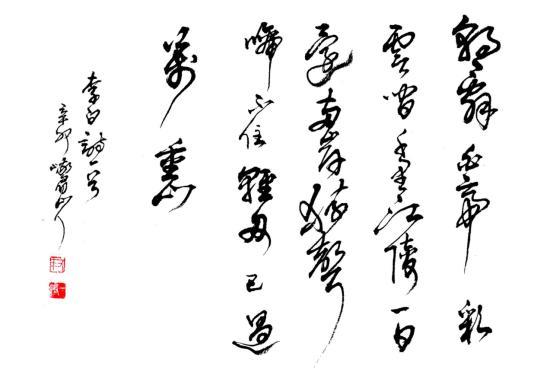 朝辭白帝彩
雲間千里江陵一日
還兩岸猿聲
啼不住輕舟已過
萬重山
李白詩一首
辛卯